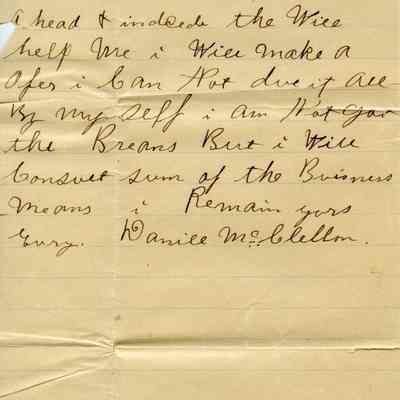 a head & indeede the Will
help Me i Will make a
Ofer i Can Not due it All
By my self i am Not Gou
the Breans But i Will
Consult sum of the Buisness
Means i Remain yours
Daniel McClellon.